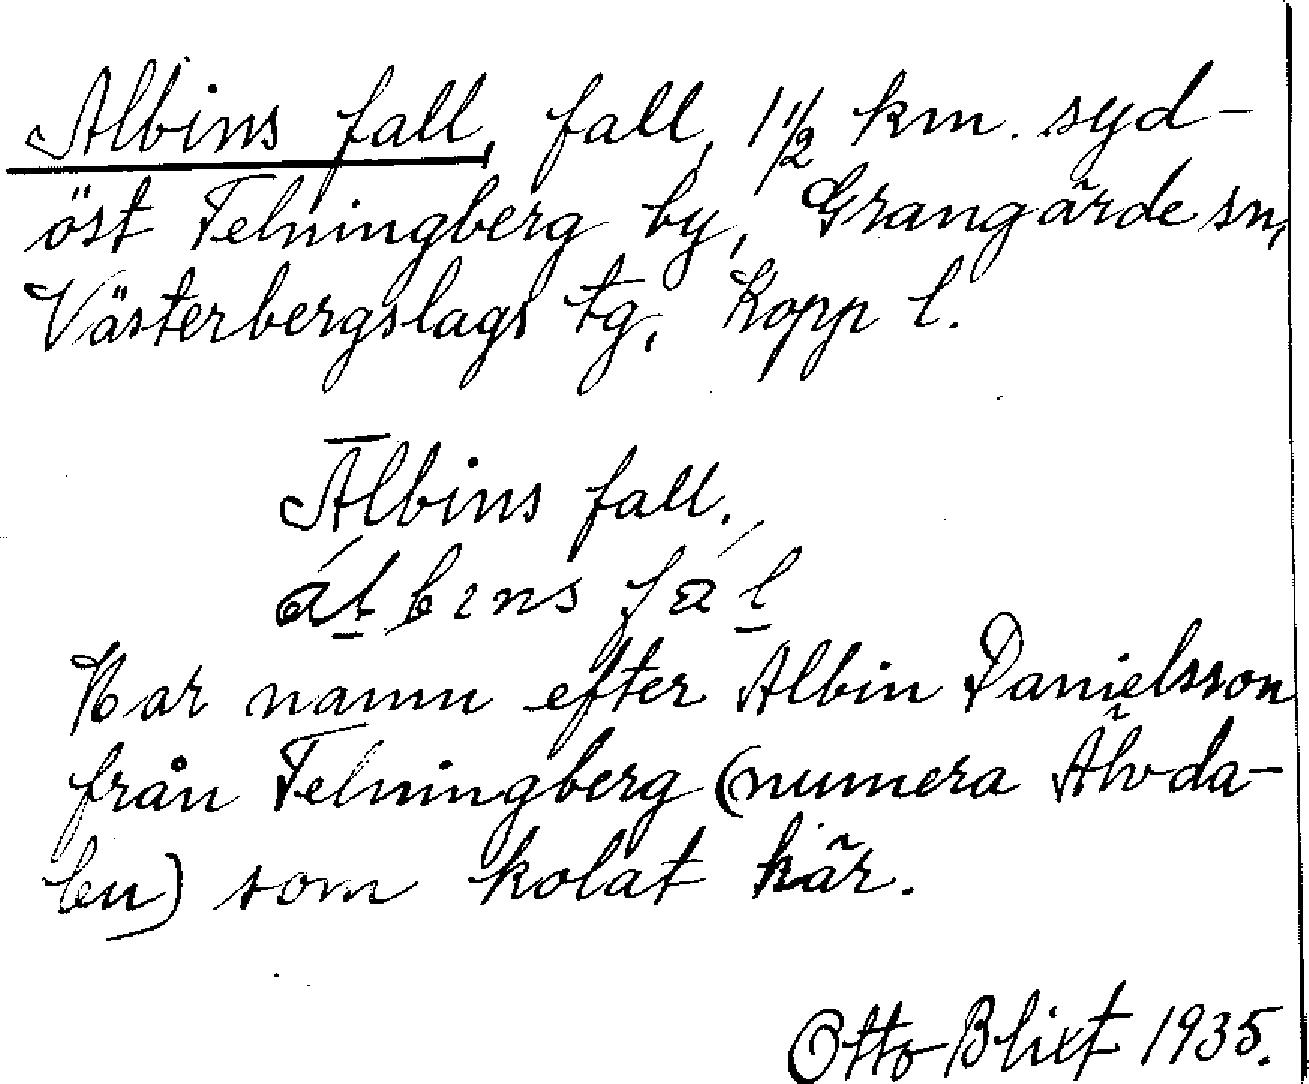 Albins fall, fall, 1 1/2 km. syd-
öst Felningberg by, Grangärde sn,
Västerbergslags tg, Kopp l.
Albins fall.
Har namn efter Albin Danielsson
från Felningberg (numera Älvda-
len) som kolat här.
Otto Blixt 1935.